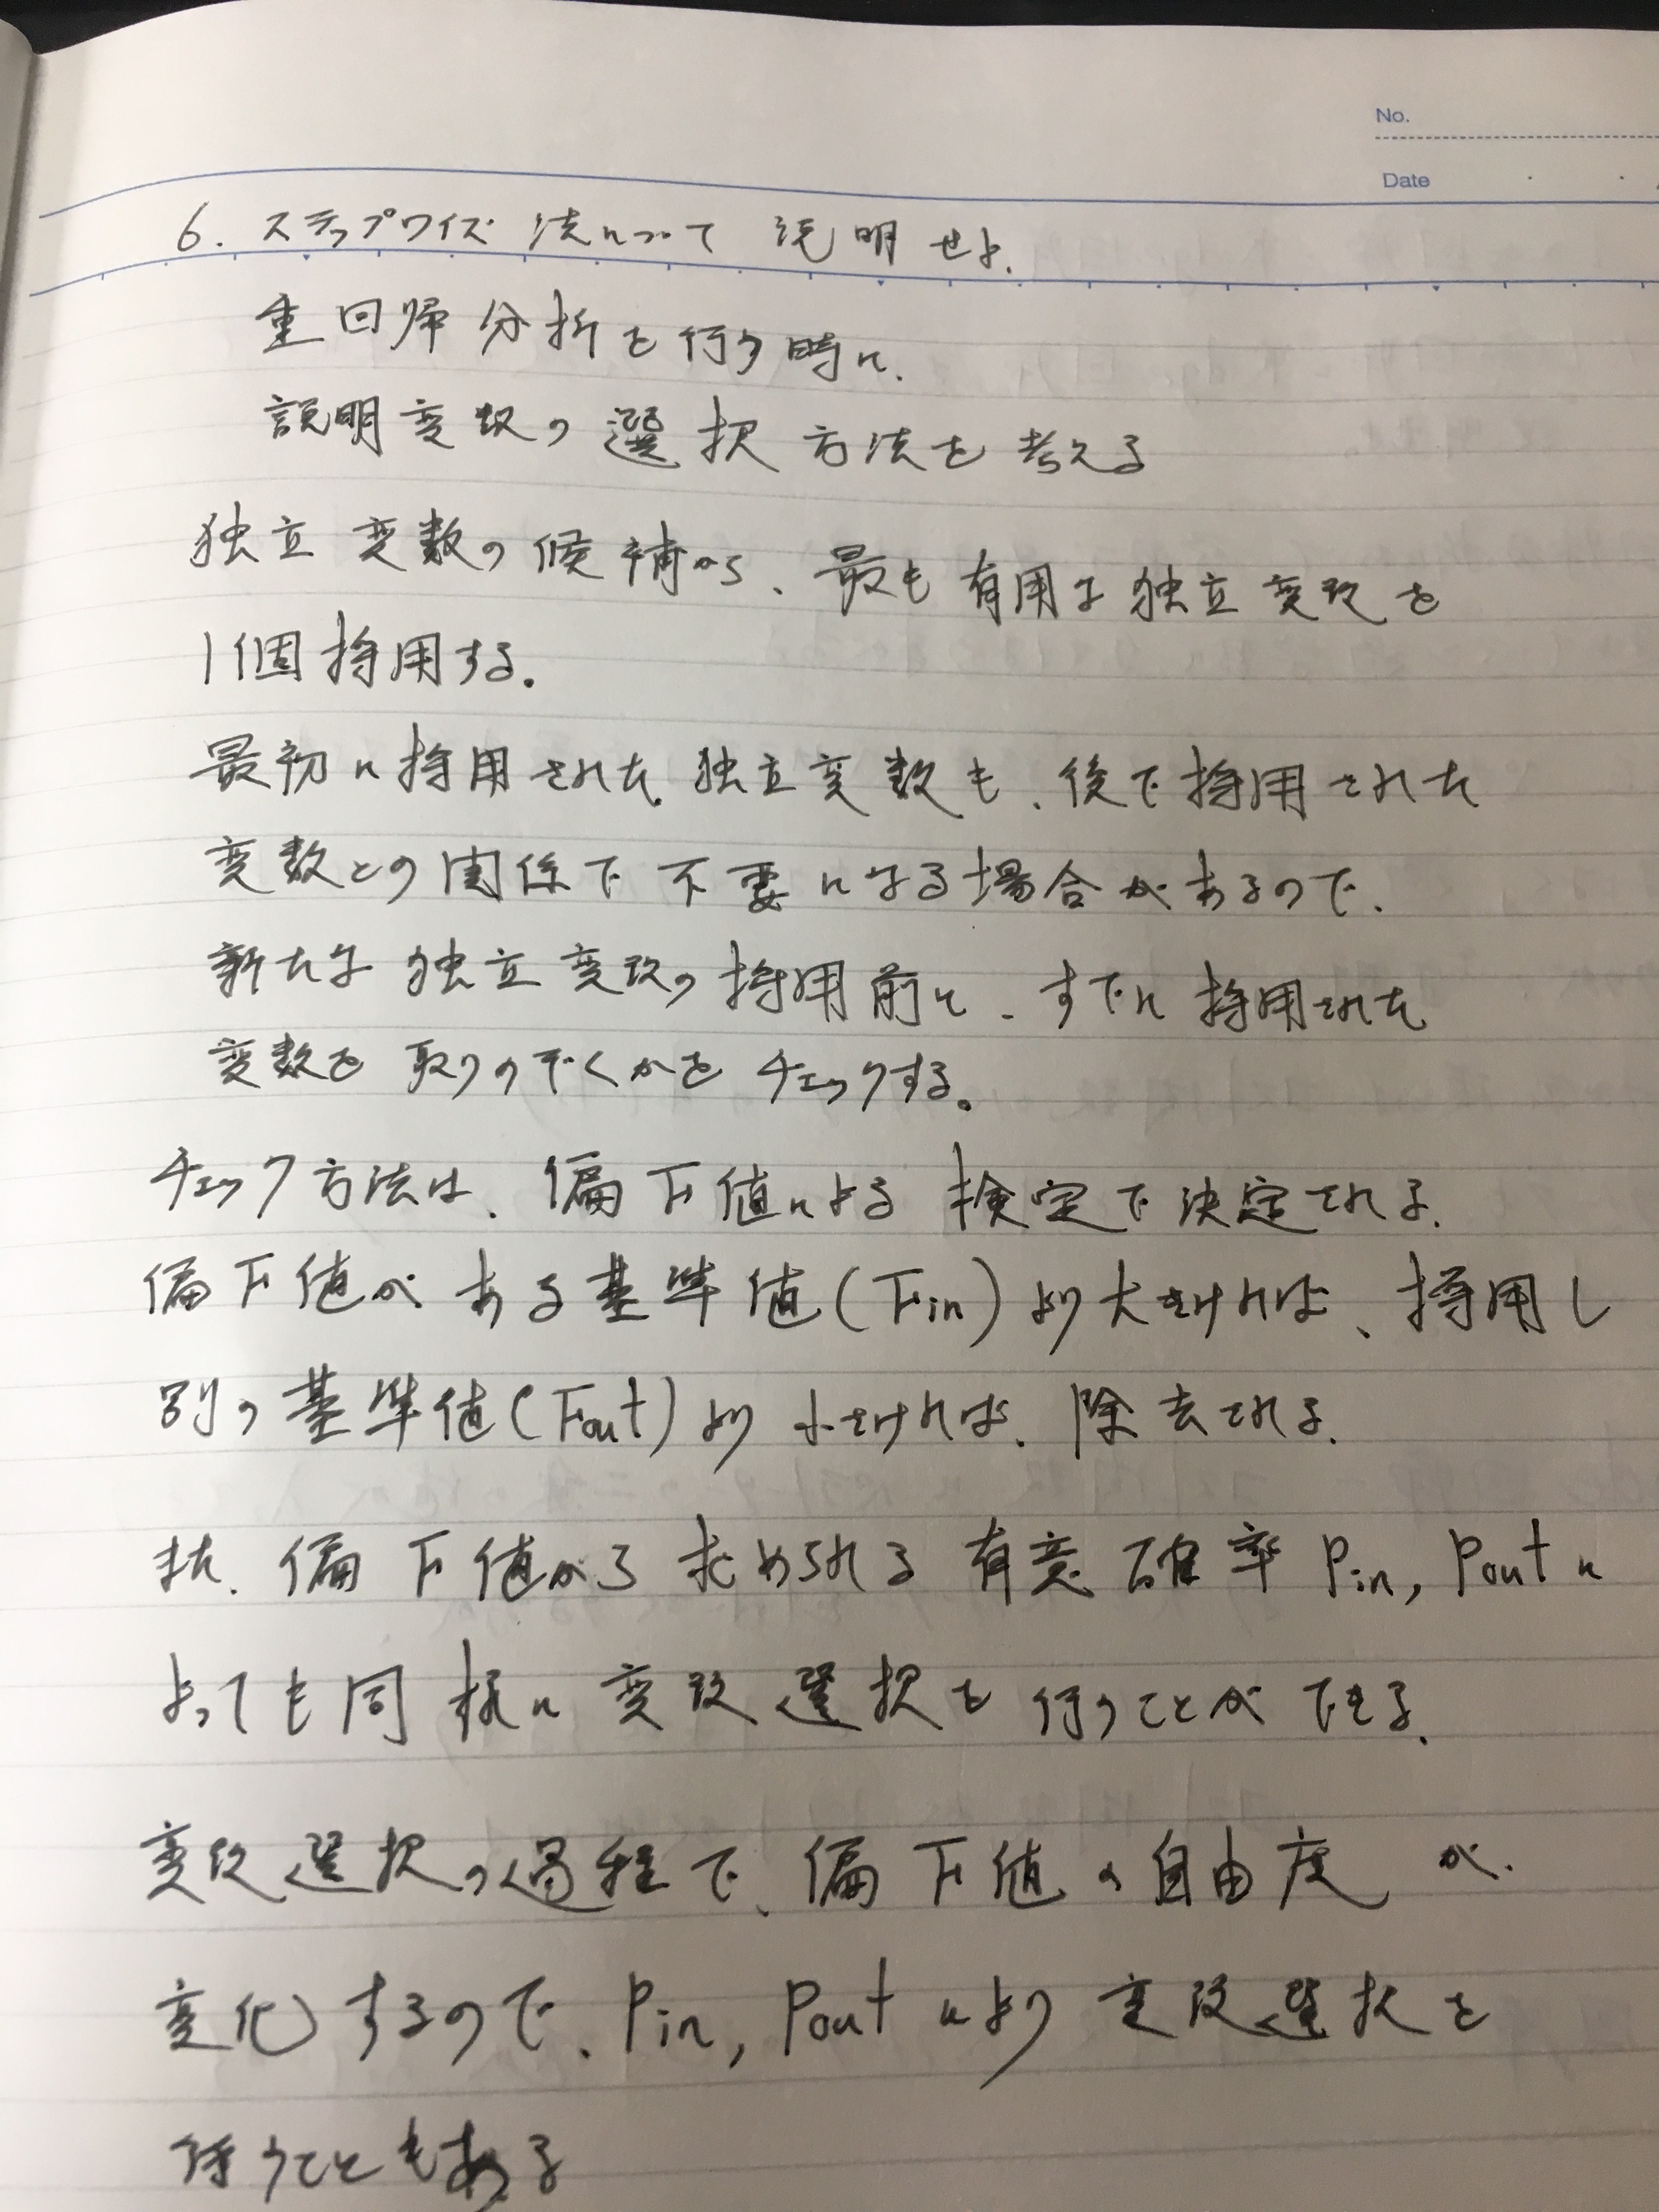 No.
Date
6. ステップワイズ 法について 説明せよ.
重回帰分析を行う時に.
説明変数の選択方法を考える
独立変数の候補から、最も有用な独立変数を
1個採用する。
最初に採用された独立変数も、後で採用された
変数との関係で不要になる場合があるので、
新たな独立変数の採用前に、すでに採用された
変数を取りのぞくかをチェックする。
チェック方法は、偏F値による検定で決定される.
偏F値がある基準値(Fin)より大きければ、採用し
別の基準値(Fout)より小さければ、除去される.
また、偏F値から求められる有意確率 Pin, Pout に
よっても同様に変数選択を行うことができる.
変数選択の過程で、偏F値の自由度 が.
変化するので、Pin, Pout により変数選択を
行うこともある